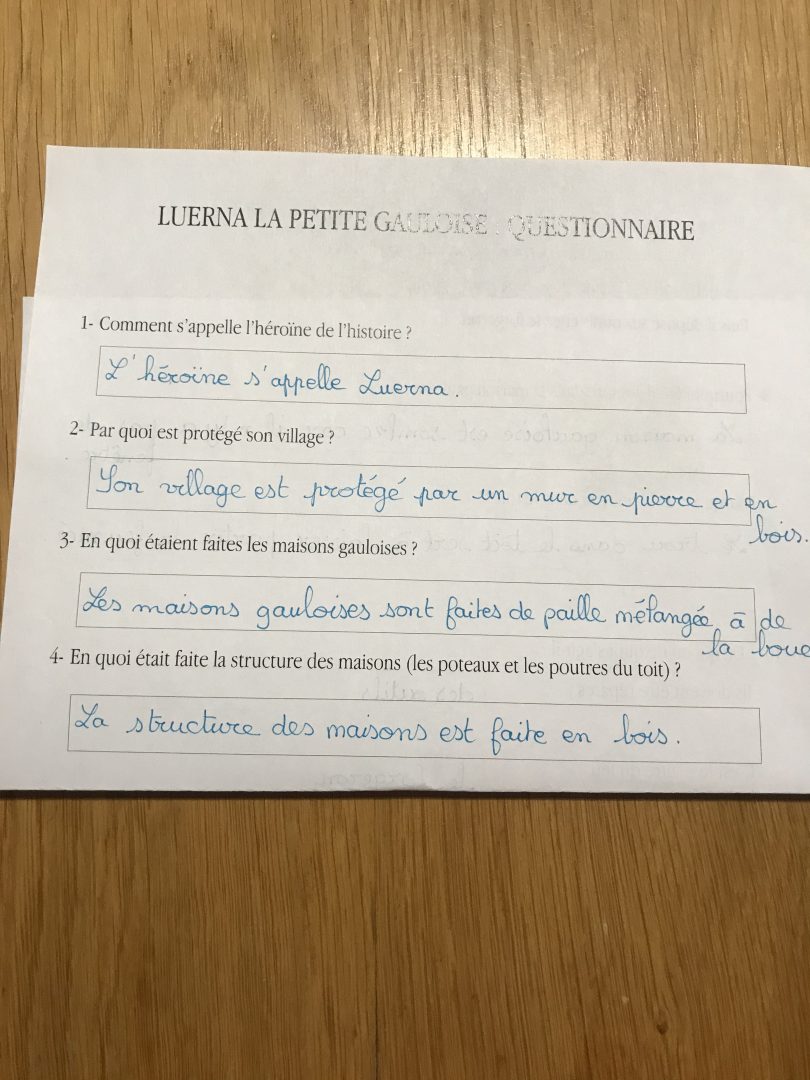 LUERNA LA PETITE GAULOISE : QUESTIONNAIRE
1- Comment s'appelle l'héroïne de l'histoire ?
L'héroïne s'appelle Luerna.
2- Par quoi est protégé son village ?
Son village est protégé par un mur en pierre et en
bois.
3- En quoi étaient faites les maisons gauloises ?
Les maisons gauloises sont faites de paille mélangée à de
la boue
4- En quoi était faite la structure des maisons (les poteaux et les poutres du toit) ?
La structure des maisons est faite en bois.